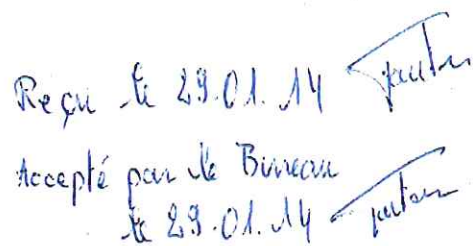 Reçu le 29.01.14
Accepté par le Bureau
le 29.01.14